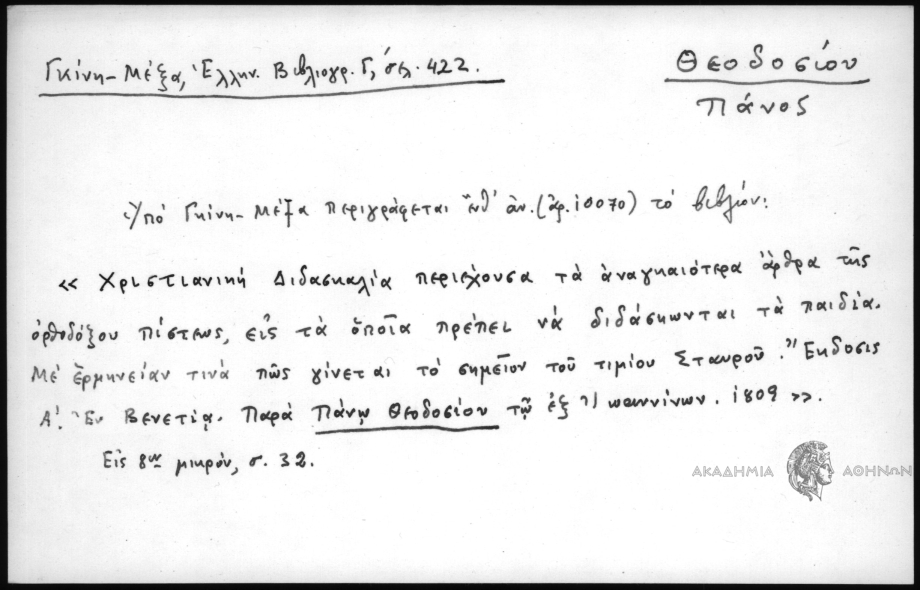 Γκίνη-Μέξα, Ἑλλην. Βιβλιογρ. Γ', σελ. 422.
Θεοδοσίου
Πάνος
Ὑπό Γκίνη-Μέξα περιγράφεται ὑπ' ἀν. (ἀρ. 10070) τό βιβλίον:
«Χριστιανική Διδασκαλία περιέχουσα τὰ ἀναγκαιότερα ἄρθρα τῆς
ὀρθοδόξου πίστεως, εἰς τὰ ὁποῖα πρέπει νά διδάσκωνται τὰ παιδία.
Μέ ἑρμηνείαν τινά πῶς γίνεται τό σημεῖον τοῦ τιμίου Σταυροῦ. Ἔκδοσις
Α'. Ἐν Βενετίᾳ. Παρά Πάνῳ Θεοδοσίου τῷ ἐξ Ἰωαννίνων. 1809».
Εἰς 8ον μικρόν, σ. 32.
ΑΚΑΔΗΜΙΑ ΑΘΗΝΩΝ